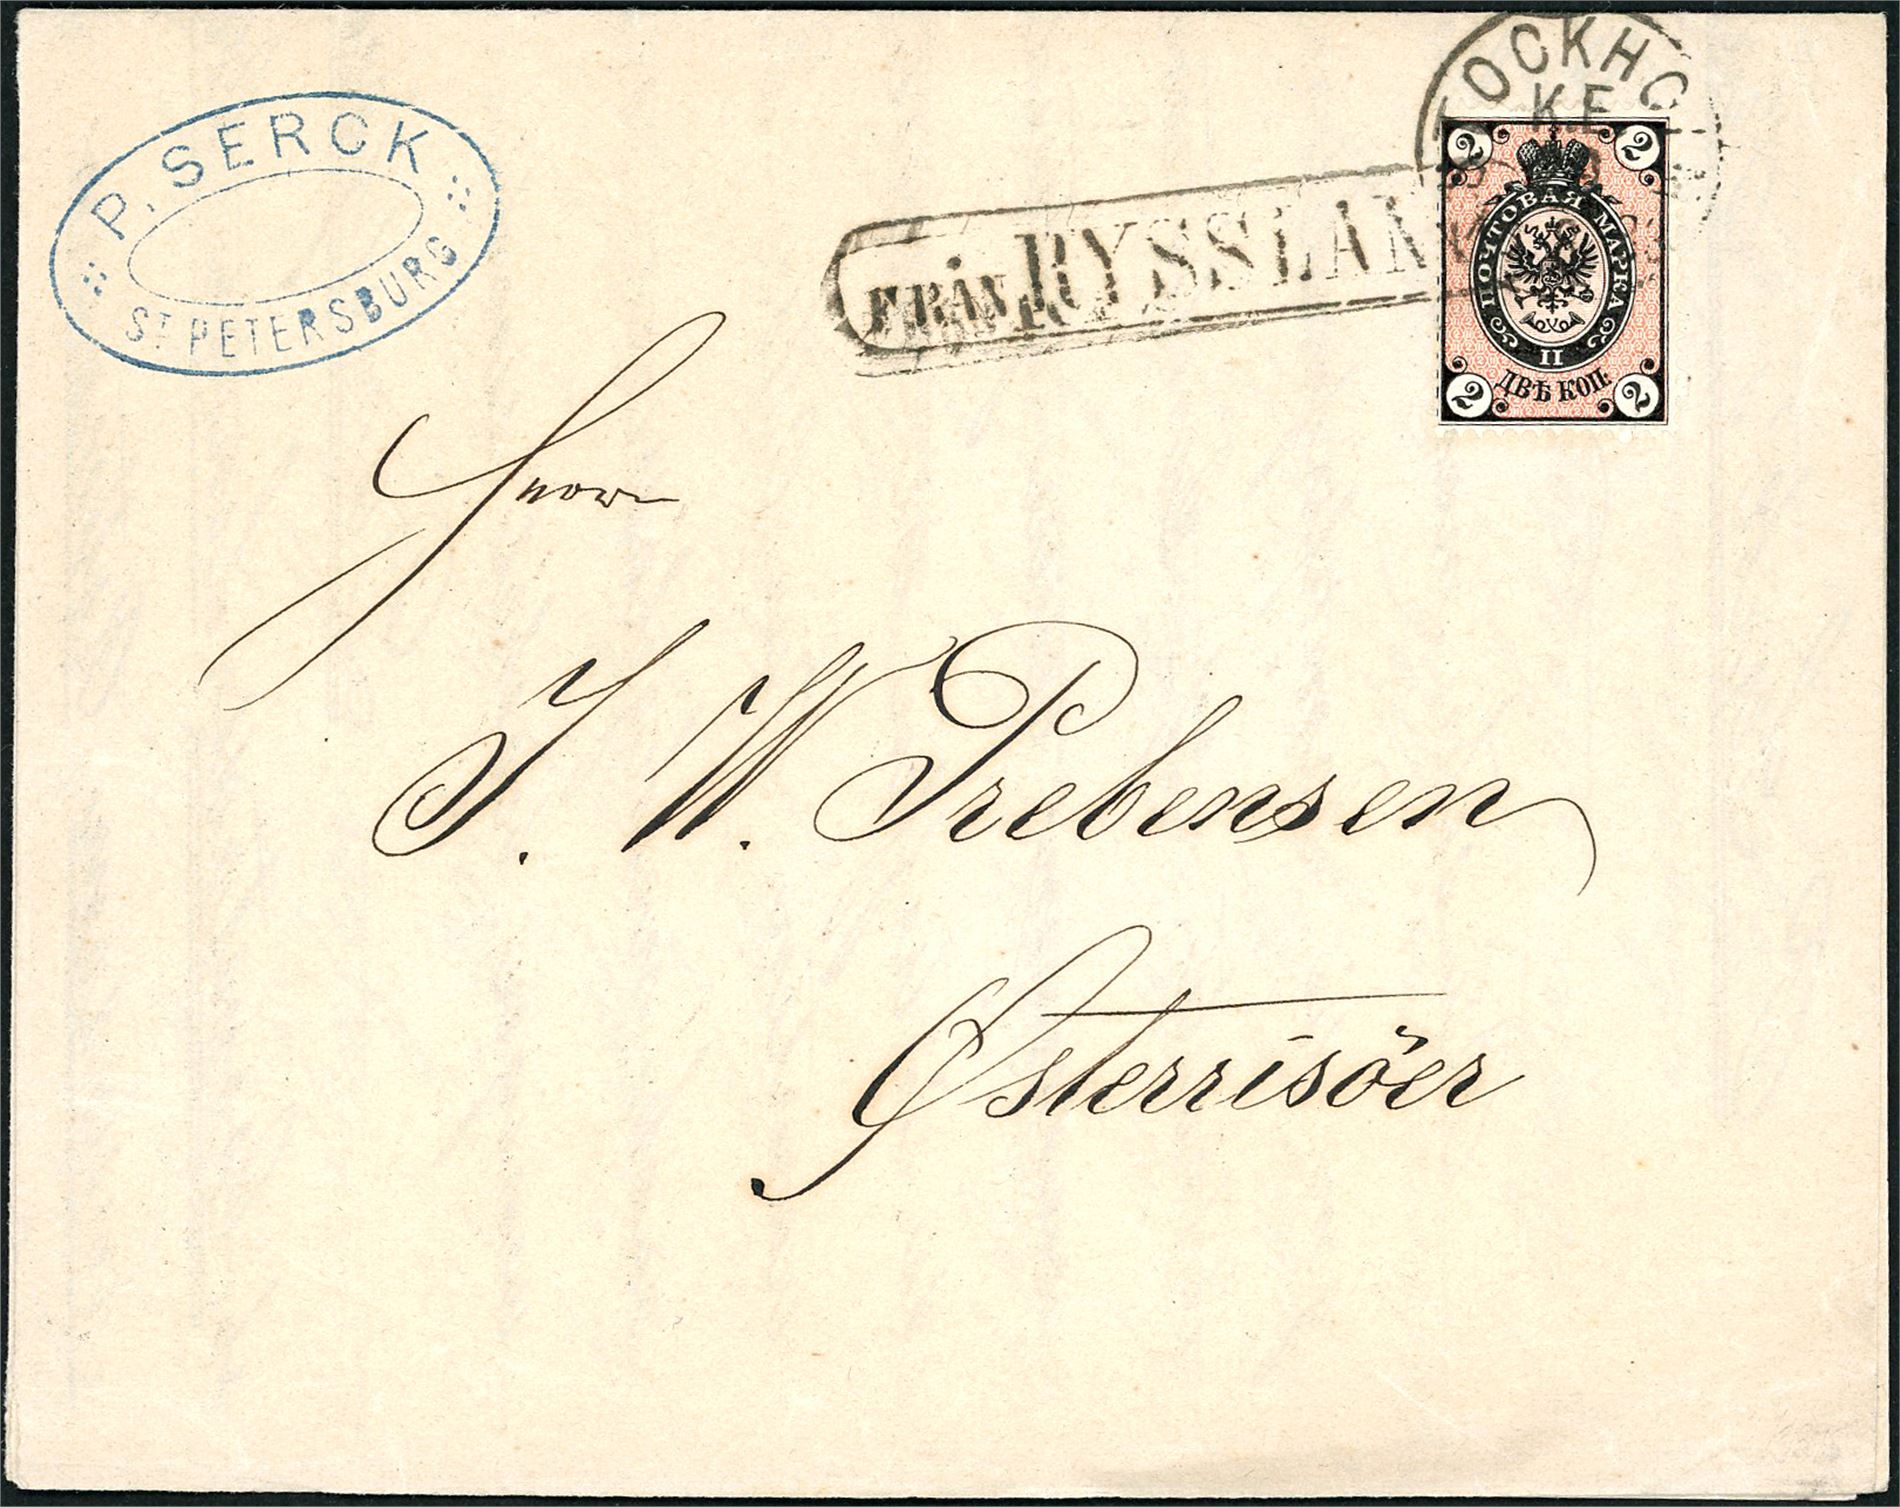 P. SERCK
ST PETERSBURG
FRÅN RYSSLAN
TOCKHO
KE
2 2
ПОЧТОВАЯ МАРКА
II
ДВѢ КОП.
2 2
Herrn
J. W. Prebensen
Østerrisöer